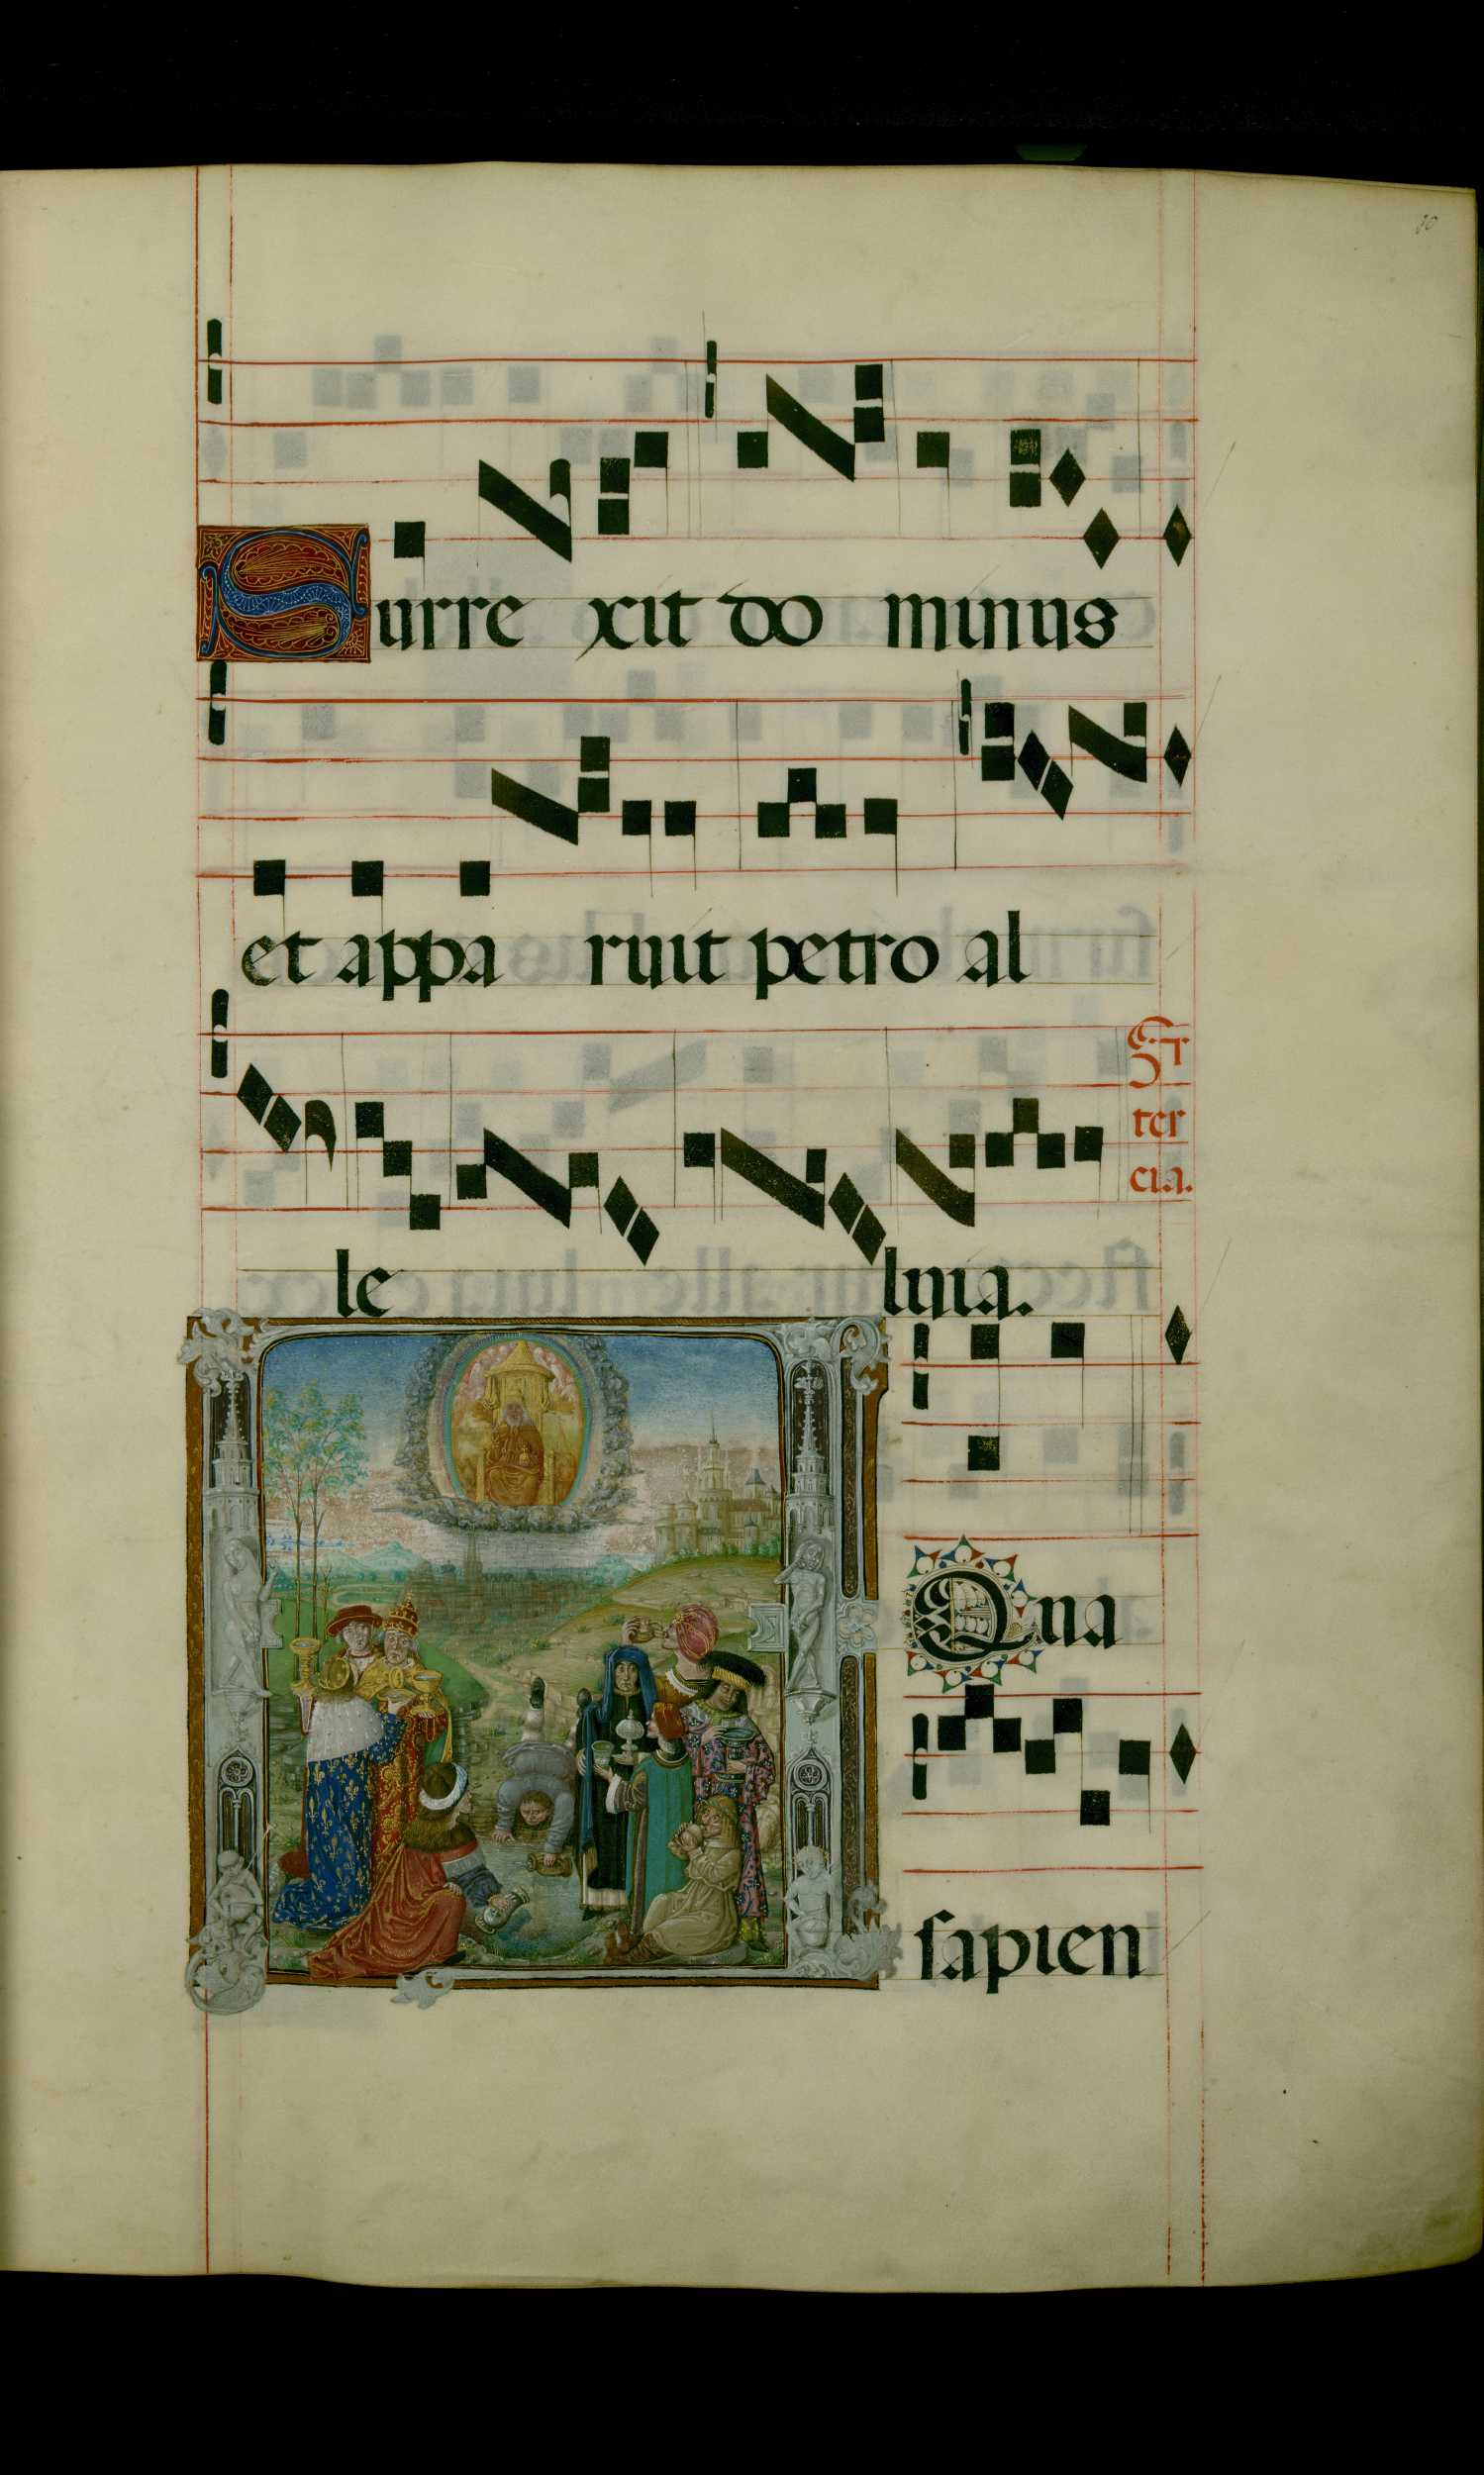 80
Surre xit do minus
et appa ruit petro al
le luia.
fr
ter
cia.
Aqua
sapien